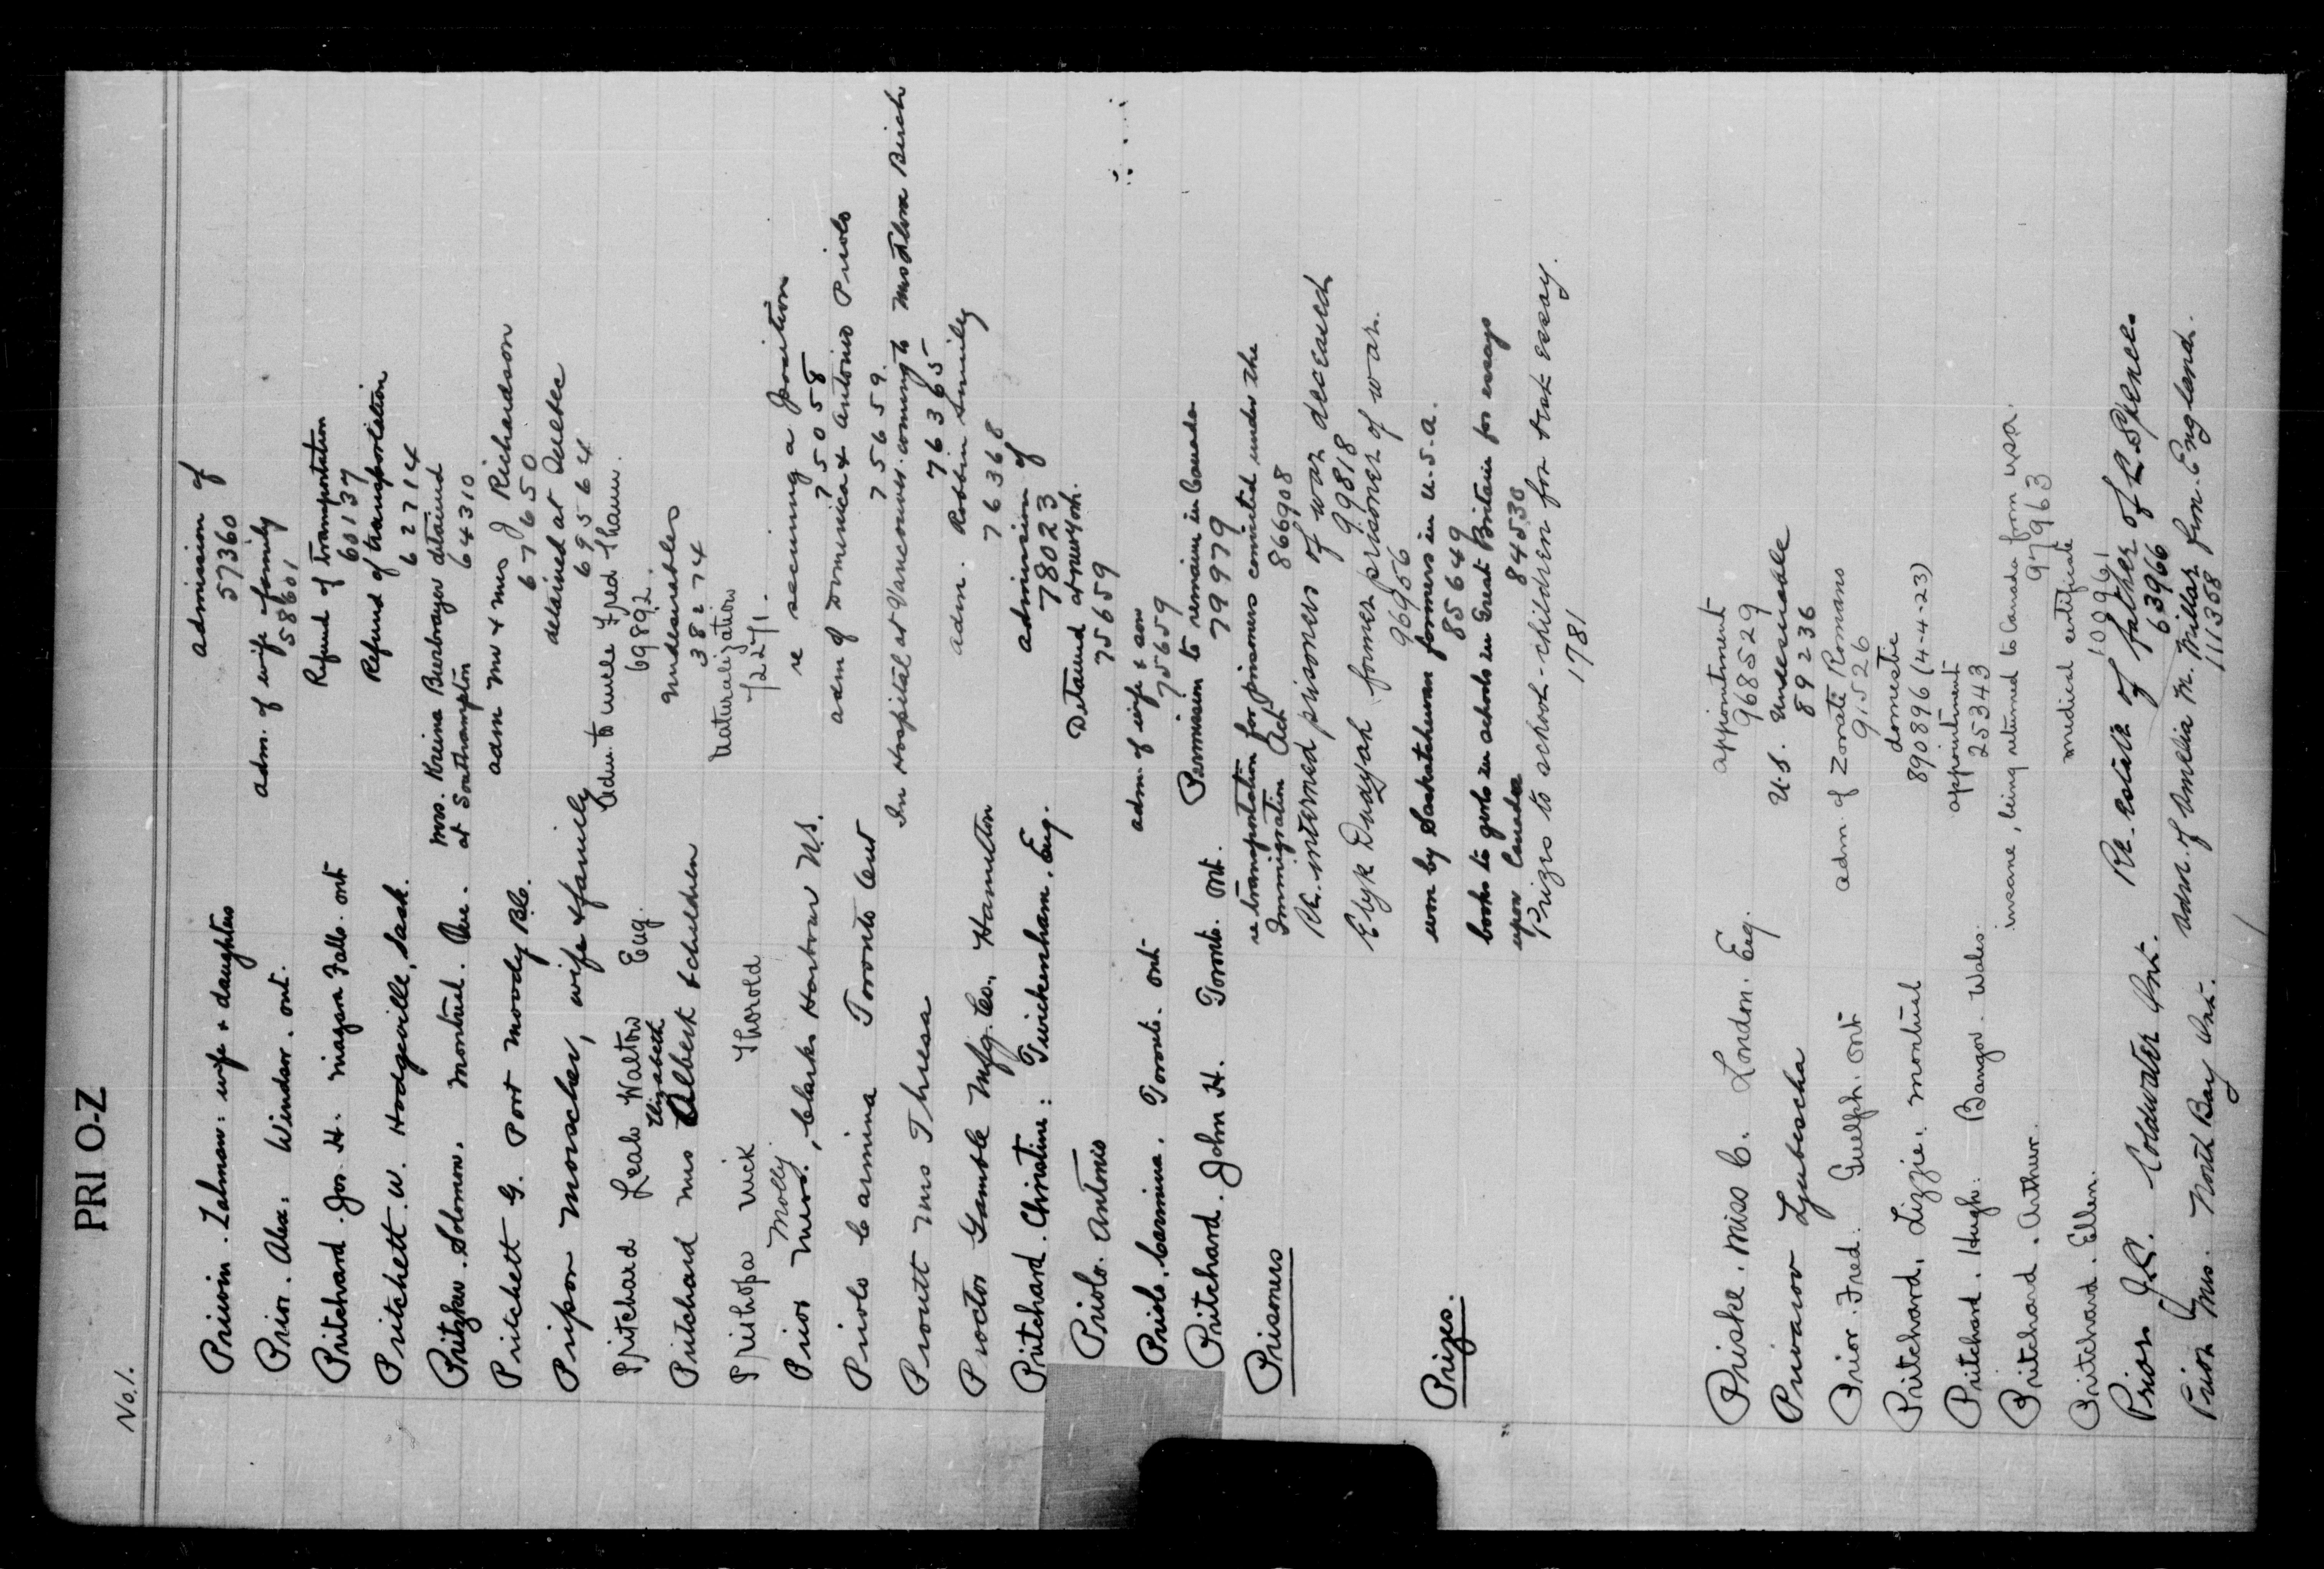 PRI O-Z
No. 1.
Priworin. Zalman: wife + daughters admission of
57360
Prior. Alex. Windsor. Ont. adm. of wife family
58601
Pritchard. Jos. H. Niagara Falls. Ont Refund of transportation
60137
Pritchett. W. Hodgeville, Sask. Refund of transportation
62714
Pritzker. Solomon. Montreal. Que. Mrs. Kreina Burbrayer detained
at Southampton 64310
Pritchett G. Port Moody B.C. adm Mr & Mrs J Richardson
67650
Pripon Moyscher, wife & family detained at Quebec
69564
Pritchard Leah Walton Eng. adm. to uncle Fred Thawn.
69892.
Pritchard Mrs Elizabeth Albert & children Undesirables
38274
Pristhopa Nick Thorold Naturalization
72271.
Prior Mrs. Molly, Clarks Harbour N.S. re securing a position
75058
Priolo Carmina Toronto Ont adm of Domenica & Antonio Priolo
75659.
Proutt Mrs Thresa In Hospital at Vancouver. coming to Mrs Flora Birch
76365
Proctor Gamble Mfg. Co., Hamilton adm. Robbin Smiley
76368
Pritchard. Christine: Twickenham. Eng. admission of
78023
Priolo. Antonio Detained at New York.
75659
Priolo. Carmina. Toronto. Ont adm. of wife & son
75659
Pritchard. John H. Toronto. Ont. Permission to remain in Canada
79979
Prisoners re transportation for prisoners convicted under the
Immigration Act 866908
Re. interned prisoners of war deceased
99818
Elyk Dwayah former prisoner of war.
96956
Prizes. won by Saskatchewan farmers in U.S.A.
85649
books to girls in schools in Great Britain for essays
upon Canada 84530
Prizes to school-children for best essay.
1781
Priske. Miss C. London. Eng. appointment
968529
Privarov Ljubischa U.S. Undesirable
89236
Prior. Fred. Guelph. Ont adm. of Zorate Romans
91526
Pritchard, Lizzie. Montreal domestic
890896 (4-4-23)
Pritchard. Hugh. Bangor. Wales. appointment
25343
Pritchard. Arthur. insane, being returned to Canada from USA.
97963
Pritchard. Ellen. medical certificate
100961
Prior J.R. Coldwater Ont. Re. estate of father of R. Spence.
63966
Prior Mrs. North Bay Ont. adm. of Amelia M. Millar from England.
111368